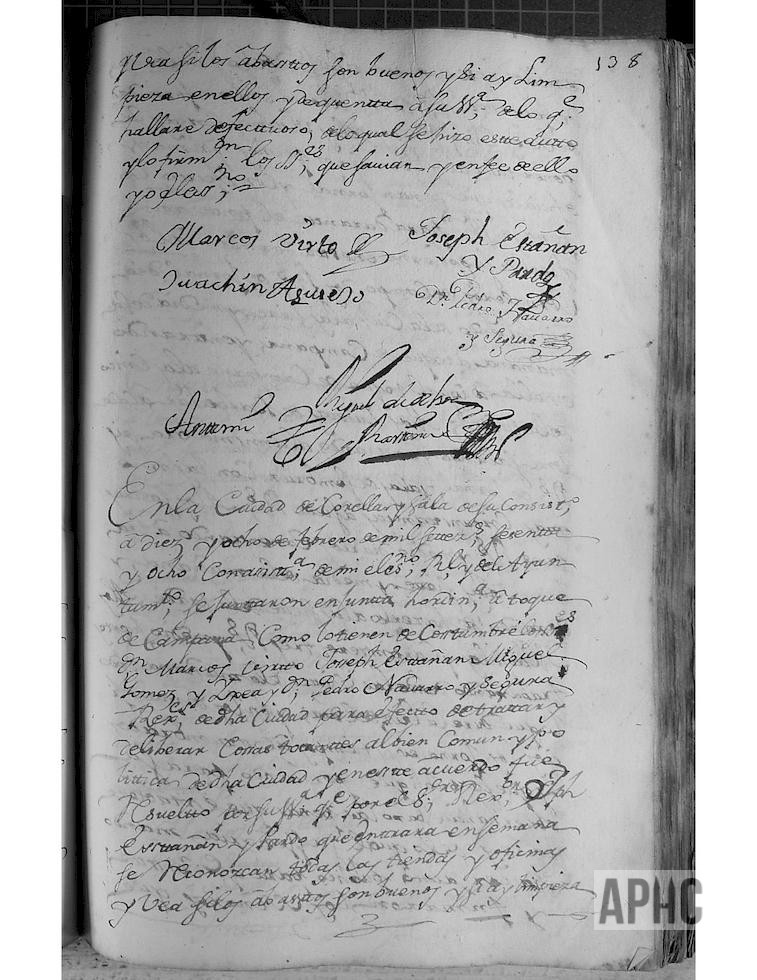 138
y vea si los abastos son buenos y si ay Lim
pieza en ellos y de quenta a su Sª; de lo q.e
hallare defectuoso, de lo qual se hizo este auto
y lo firm.n los SS.es; que savian y en fee de ello
yo el ess.no;
Marcos Virto Joseph Escañan
y Pardo
Juachin Asuero Dn. Pedro Navarro
y Segura
Antemi Miguel
Martinez
En la Ciudad de Corella y sala de su Consist.o
a diez y ocho de febrero de mil setez.s; setenta
y ocho Con asist.a; de mi el es.no, Rl, y del Ayun
tam.to; se juntaron en junta hordin.a; a toque
de Campana, Como lo tienen de Costumbre los SS.es
Dn Marcos Virto Joseph Escañan Miguel
Gomez y Urea y Dn; Pedro Navarro y Segura
Rex.es de dha Ciudad para efecto de tratar y
deliberar Cossas tocantes al bien Comun y po
litica de dha Ciudad y en este acuerdo fue
Resuelto por su Sª q.e por el S.; Rex.or; Dn Jph
Escañan y Pardo que entrara en semana
se Reconozcan todas las tiendas y oficinas
y vea si los abastos son buenos y si ay limpieza
APHC